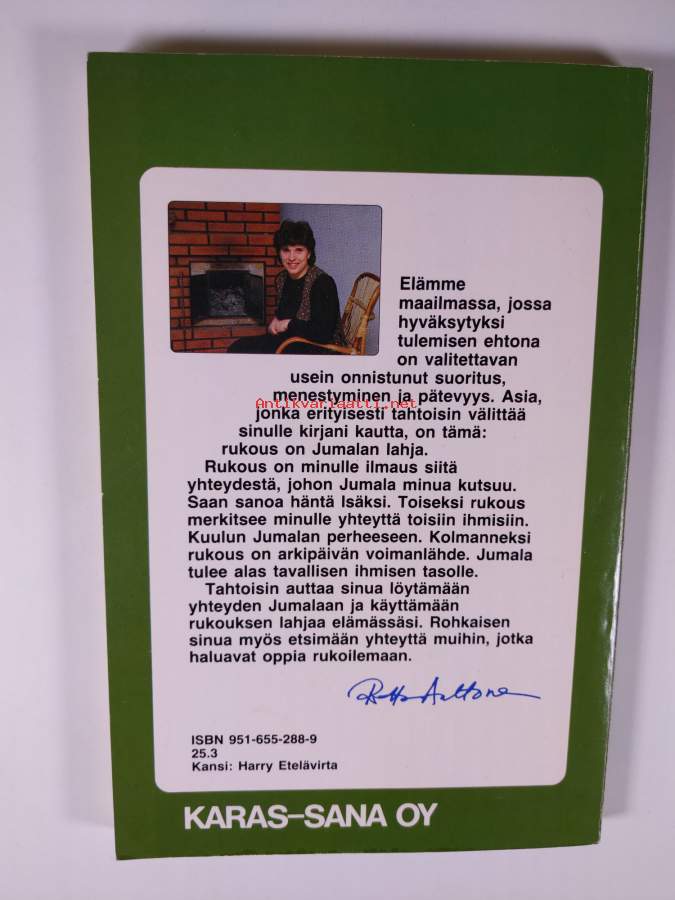 Elämme
maailmassa, jossa
hyväksytyksi
tulemisen ehtona
on valitettavan
usein onnistunut suoritus,
menestyminen ja pätevyys. Asia,
Antikvariaatti.net
jonka erityisesti tahtoisin välittää
sinulle kirjani kautta, on tämä:
rukous on Jumalan lahja.
Rukous on minulle ilmaus siitä
yhteydestä, johon Jumala minua kutsuu.
Saan sanoa häntä Isäksi. Toiseksi rukous
merkitsee minulle yhteyttä toisiin ihmisiin.
Kuulun Jumalan perheeseen. Kolmanneksi
rukous on arkipäivän voimanlähde. Jumala
tulee alas tavallisen ihmisen tasolle.
Tahtoisin auttaa sinua löytämään
yhteyden Jumalaan ja käyttämään
rukouksen lahjaa elämässäsi. Rohkaisen
sinua myös etsimään yhteyttä muihin, jotka
haluavat oppia rukoilemaan.
ISBN 951-655-288-9
25.3
Kansi: Harry Etelävirta
KARAS–SANA OY